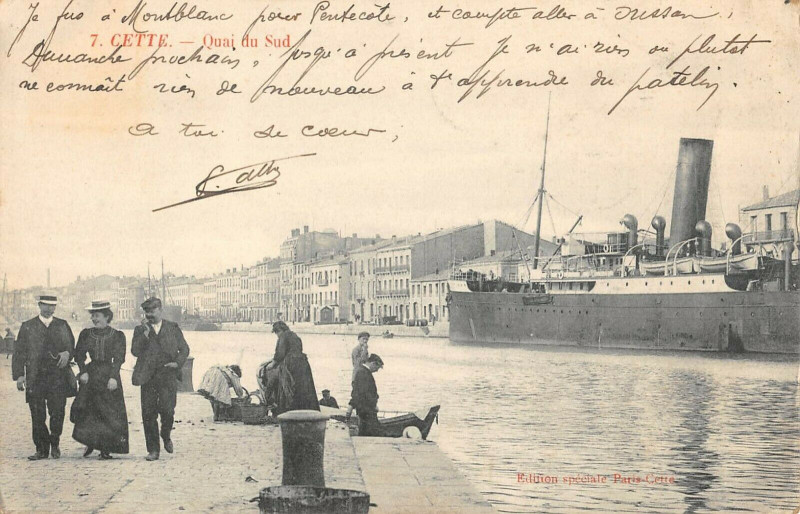 Je fus à Montblanc pour Pentecôte, et compte aller à Oussan,
7. CETTE. — Quai du Sud
Dimanche prochain, jusqu'à présent je n'ai rien ou plutôt
ne connaît rien de nouveau à t'apprendre du patelin.
A toi de coeur,
Edition spéciale Paris-Cette